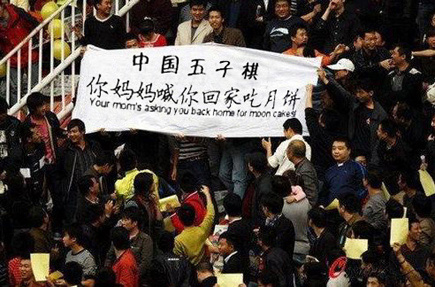 中国五子棋
你妈妈喊你回家吃月饼
Your mom's asking you back home for moon cakes!